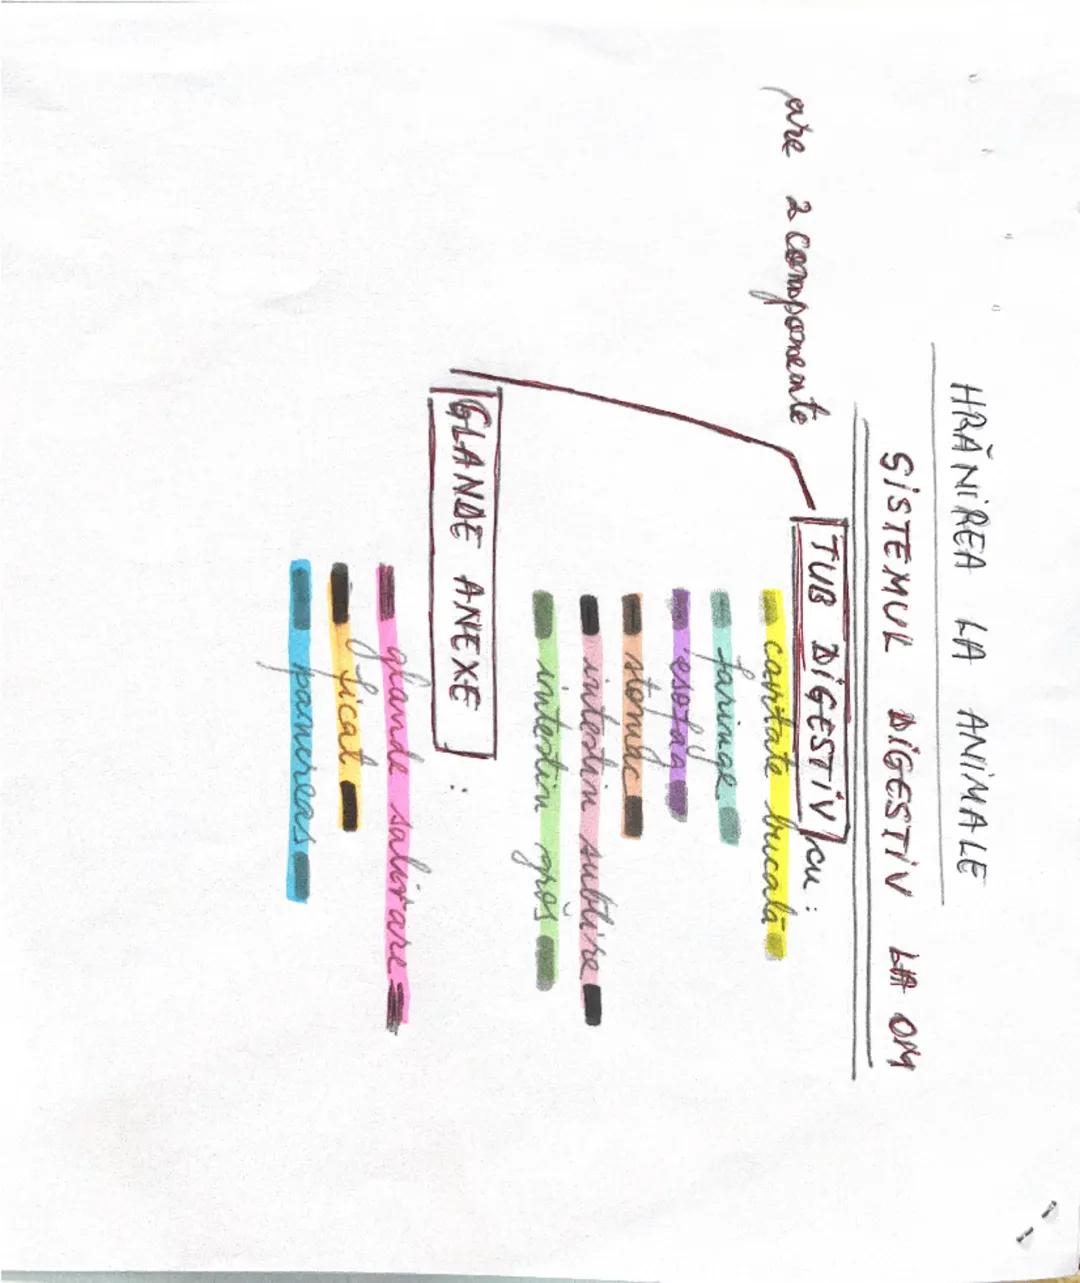 HRĂNIREA LA ANIMALE
SISTEMUL DIGESTIV LA OM
are 2 componente
TUB DIGESTIV cu:
cavitate bucală
faringe
esofag
stomac
intestin subtire
intestin gros
GLANDE ANEXE :
glande salivare
ficat
pancreas